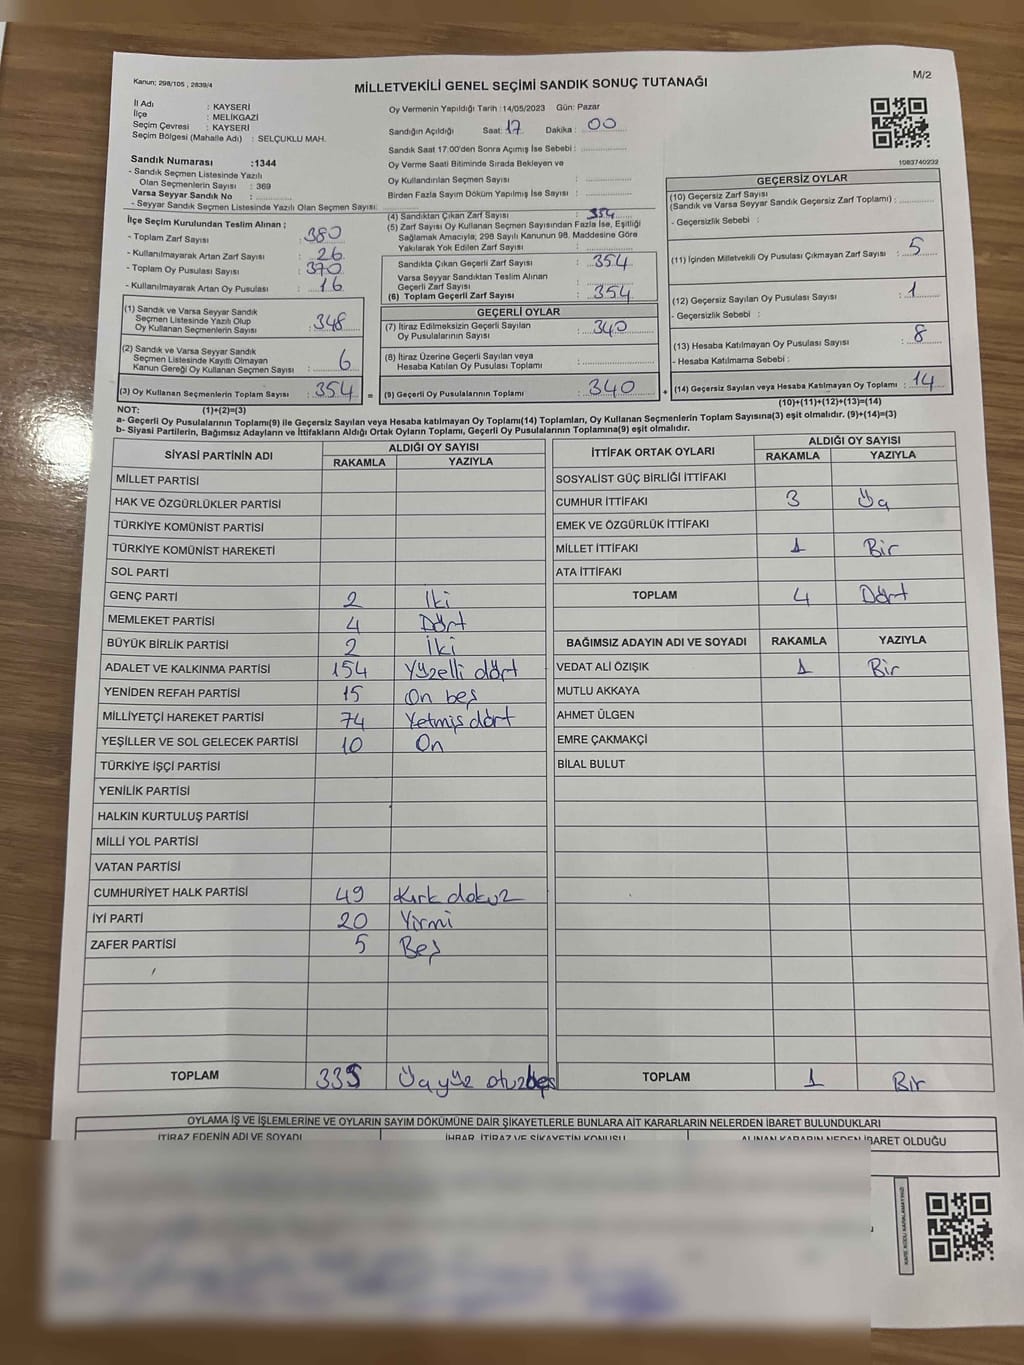 Kanun: 298/105 , 2839/4
MİLLETVEKİLİ GENEL SEÇİMİ SANDIK SONUÇ TUTANAĞI
M/2
İl Adı : KAYSERİ
İlçe : MELİKGAZİ
Seçim Çevresi : KAYSERİ
Seçim Bölgesi (Mahalle Adı) : SELÇUKLU MAH.
Sandık Numarası :1344
- Sandık Seçmen Listesinde Yazılı
Olan Seçmenlerin Sayısı : 369
Varsa Seyyar Sandık No :
- Seyyar Sandık Seçmen Listesinde Yazılı Olan Seçmen Sayısı:
Oy Vermenin Yapıldığı Tarih :14/05/2023 Gün: Pazar
Sandığın Açıldığı Saat: 17 Dakika : 00
Sandık Saat 17:00'den Sonra Açımış İse Sebebi :
Oy Verme Saati Bitiminde Sırada Bekleyen ve
Oy Kullandırılan Seçmen Sayısı :
Birden Fazla Sayım Döküm Yapılmış İse Sayısı :
1083740232
İlçe Seçim Kurulundan Teslim Alınan ;
- Toplam Zarf Sayısı : 380
- Kullanılmayarak Artan Zarf Sayısı : 26
- Toplam Oy Pusulası Sayısı : 370
- Kullanılmayarak Artan Oy Pusulası : 16
(1) Sandık ve Varsa Seyyar Sandık
Seçmen Listesinde Yazılı Olup
Oy Kullanan Seçmenlerin Sayısı : 348
(2) Sandık ve Varsa Seyyar Sandık
Seçmen Listesinde Kayıtlı Olmayan
Kanun Gereği Oy Kullanan Seçmen Sayısı : 6
(3) Oy Kullanan Seçmenlerin Toplam Sayısı : 354
(4) Sandıktan Çıkan Zarf Sayısı : 354
(5) Zarf Sayısı Oy Kullanan Seçmen Sayısından Fazla İse, Eşitliği
Sağlamak Amacıyla; 298 Sayılı Kanunun 98. Maddesine Göre
Yakılarak Yok Edilen Zarf Sayısı :
Sandıkta Çıkan Geçerli Zarf Sayısı : 354
Varsa Seyyar Sandıktan Teslim Alınan
Geçerli Zarf Sayısı :
(6) Toplam Geçerli Zarf Sayısı : 354
GEÇERLİ OYLAR
(7) İtiraz Edilmeksizin Geçerli Sayılan
Oy Pusulalarının Sayısı : 340
(8) İtiraz Üzerine Geçerli Sayılan veya
Hesaba Katılan Oy Pusulası Toplamı :
= (9) Geçerli Oy Pusulalarının Toplamı : 340 +
GEÇERSİZ OYLAR
(10) Geçersiz Zarf Sayısı
(Sandık ve Varsa Seyyar Sandık Geçersiz Zarf Toplamı) :
- Geçersizlik Sebebi :
(11) İçinden Milletvekili Oy Pusulası Çıkmayan Zarf Sayısı : 5
(12) Geçersiz Sayılan Oy Pusulası Sayısı : 1
- Geçersizlik Sebebi :
(13) Hesaba Katılmayan Oy Pusulası Sayısı : 8
- Hesaba Katılmama Sebebi :
(14) Geçersiz Sayılan veya Hesaba Katılmayan Oy Toplamı : 14
NOT: (1)+(2)=(3)
(10)+(11)+(12)+(13)=(14)
a- Geçerli Oy Pusulalarının Toplamı(9) ile Geçersiz Sayılan veya Hesaba katılmayan Oy Toplamı(14) Toplamları, Oy Kullanan Seçmenlerin Toplam Sayısına(3) eşit olmalıdır. (9)+(14)=(3)
b- Siyasi Partilerin, Bağımsız Adayların ve İttifakların Aldığı Ortak Oyların Toplamı, Geçerli Oy Pusulalarının Toplamına(9) eşit olmalıdır.
SİYASİ PARTİNİN ADI
ALDIĞI OY SAYISI
RAKAMLA YAZIYLA
MİLLET PARTİSİ
HAK VE ÖZGÜRLÜKLER PARTİSİ
TÜRKİYE KOMÜNİST PARTİSİ
TÜRKİYE KOMÜNİST HAREKETİ
SOL PARTİ
GENÇ PARTİ 2 İki
MEMLEKET PARTİSİ 4 Dört
BÜYÜK BİRLİK PARTİSİ 2 İki
ADALET VE KALKINMA PARTİSİ 154 Yüzelli dört
YENİDEN REFAH PARTİSİ 15 On beş
MİLLİYETÇİ HAREKET PARTİSİ 74 Yetmiş dört
YEŞİLLER VE SOL GELECEK PARTİSİ 10 On
TÜRKİYE İŞÇİ PARTİSİ
YENİLİK PARTİSİ
HALKIN KURTULUŞ PARTİSİ
MİLLİ YOL PARTİSİ
VATAN PARTİSİ
CUMHURİYET HALK PARTİSİ 49 Kırk dokuz
İYİ PARTİ 20 Yirmi
ZAFER PARTİSİ 5 Beş
TOPLAM 335 Üçyüz otuzbeş
İTTİFAK ORTAK OYLARI
ALDIĞI OY SAYISI
RAKAMLA YAZIYLA
SOSYALİST GÜÇ BİRLİĞİ İTTİFAKI
CUMHUR İTTİFAKI 3 Üç
EMEK VE ÖZGÜRLÜK İTTİFAKI
MİLLET İTTİFAKI 1 Bir
ATA İTTİFAKI
TOPLAM 4 Dört
BAĞIMSIZ ADAYIN ADI VE SOYADI RAKAMLA YAZIYLA
VEDAT ALİ ÖZIŞIK 1 Bir
MUTLU AKKAYA
AHMET ÜLGEN
EMRE ÇAKMAKÇİ
BİLAL BULUT
TOPLAM 1 Bir
OYLAMA İŞ VE İŞLEMLERİNE VE OYLARIN SAYIM DÖKÜMÜNE DAİR ŞİKAYETLERLE BUNLARA AİT KARARLARIN NELERDEN İBARET BULUNDUKLARI
İTİRAZ EDENİN ADI VE SOYADI İHBAR, İTİRAZ VE ŞİKAYETİN KONUSU ALINAN KARARIN NEDEN İBARET OLDUĞU
KARE KODU KARALAMAYINIZ!